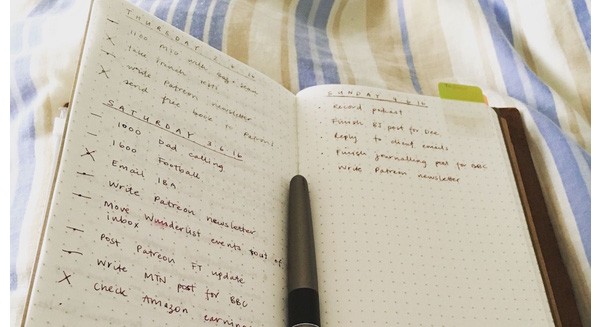 THURSDAY 2.6.16
— 1100 MTG with
× take French
× write Patreon newsletter
× send free book to Patreon
SATURDAY 3.6.16
— 1000 Dad calling
— 1600 Football
× Email IBA
— Write Patreon newsletter
— Move Wunderlist events out of
inbox
— Post Patreon FT update
— Write MTN post for BBC
× Check Amazon earnings
SUNDAY
· Record podcast
· Finish post for
· Reply to client emails
· Finish journalling post for BBC
· Write Patreon newsletter